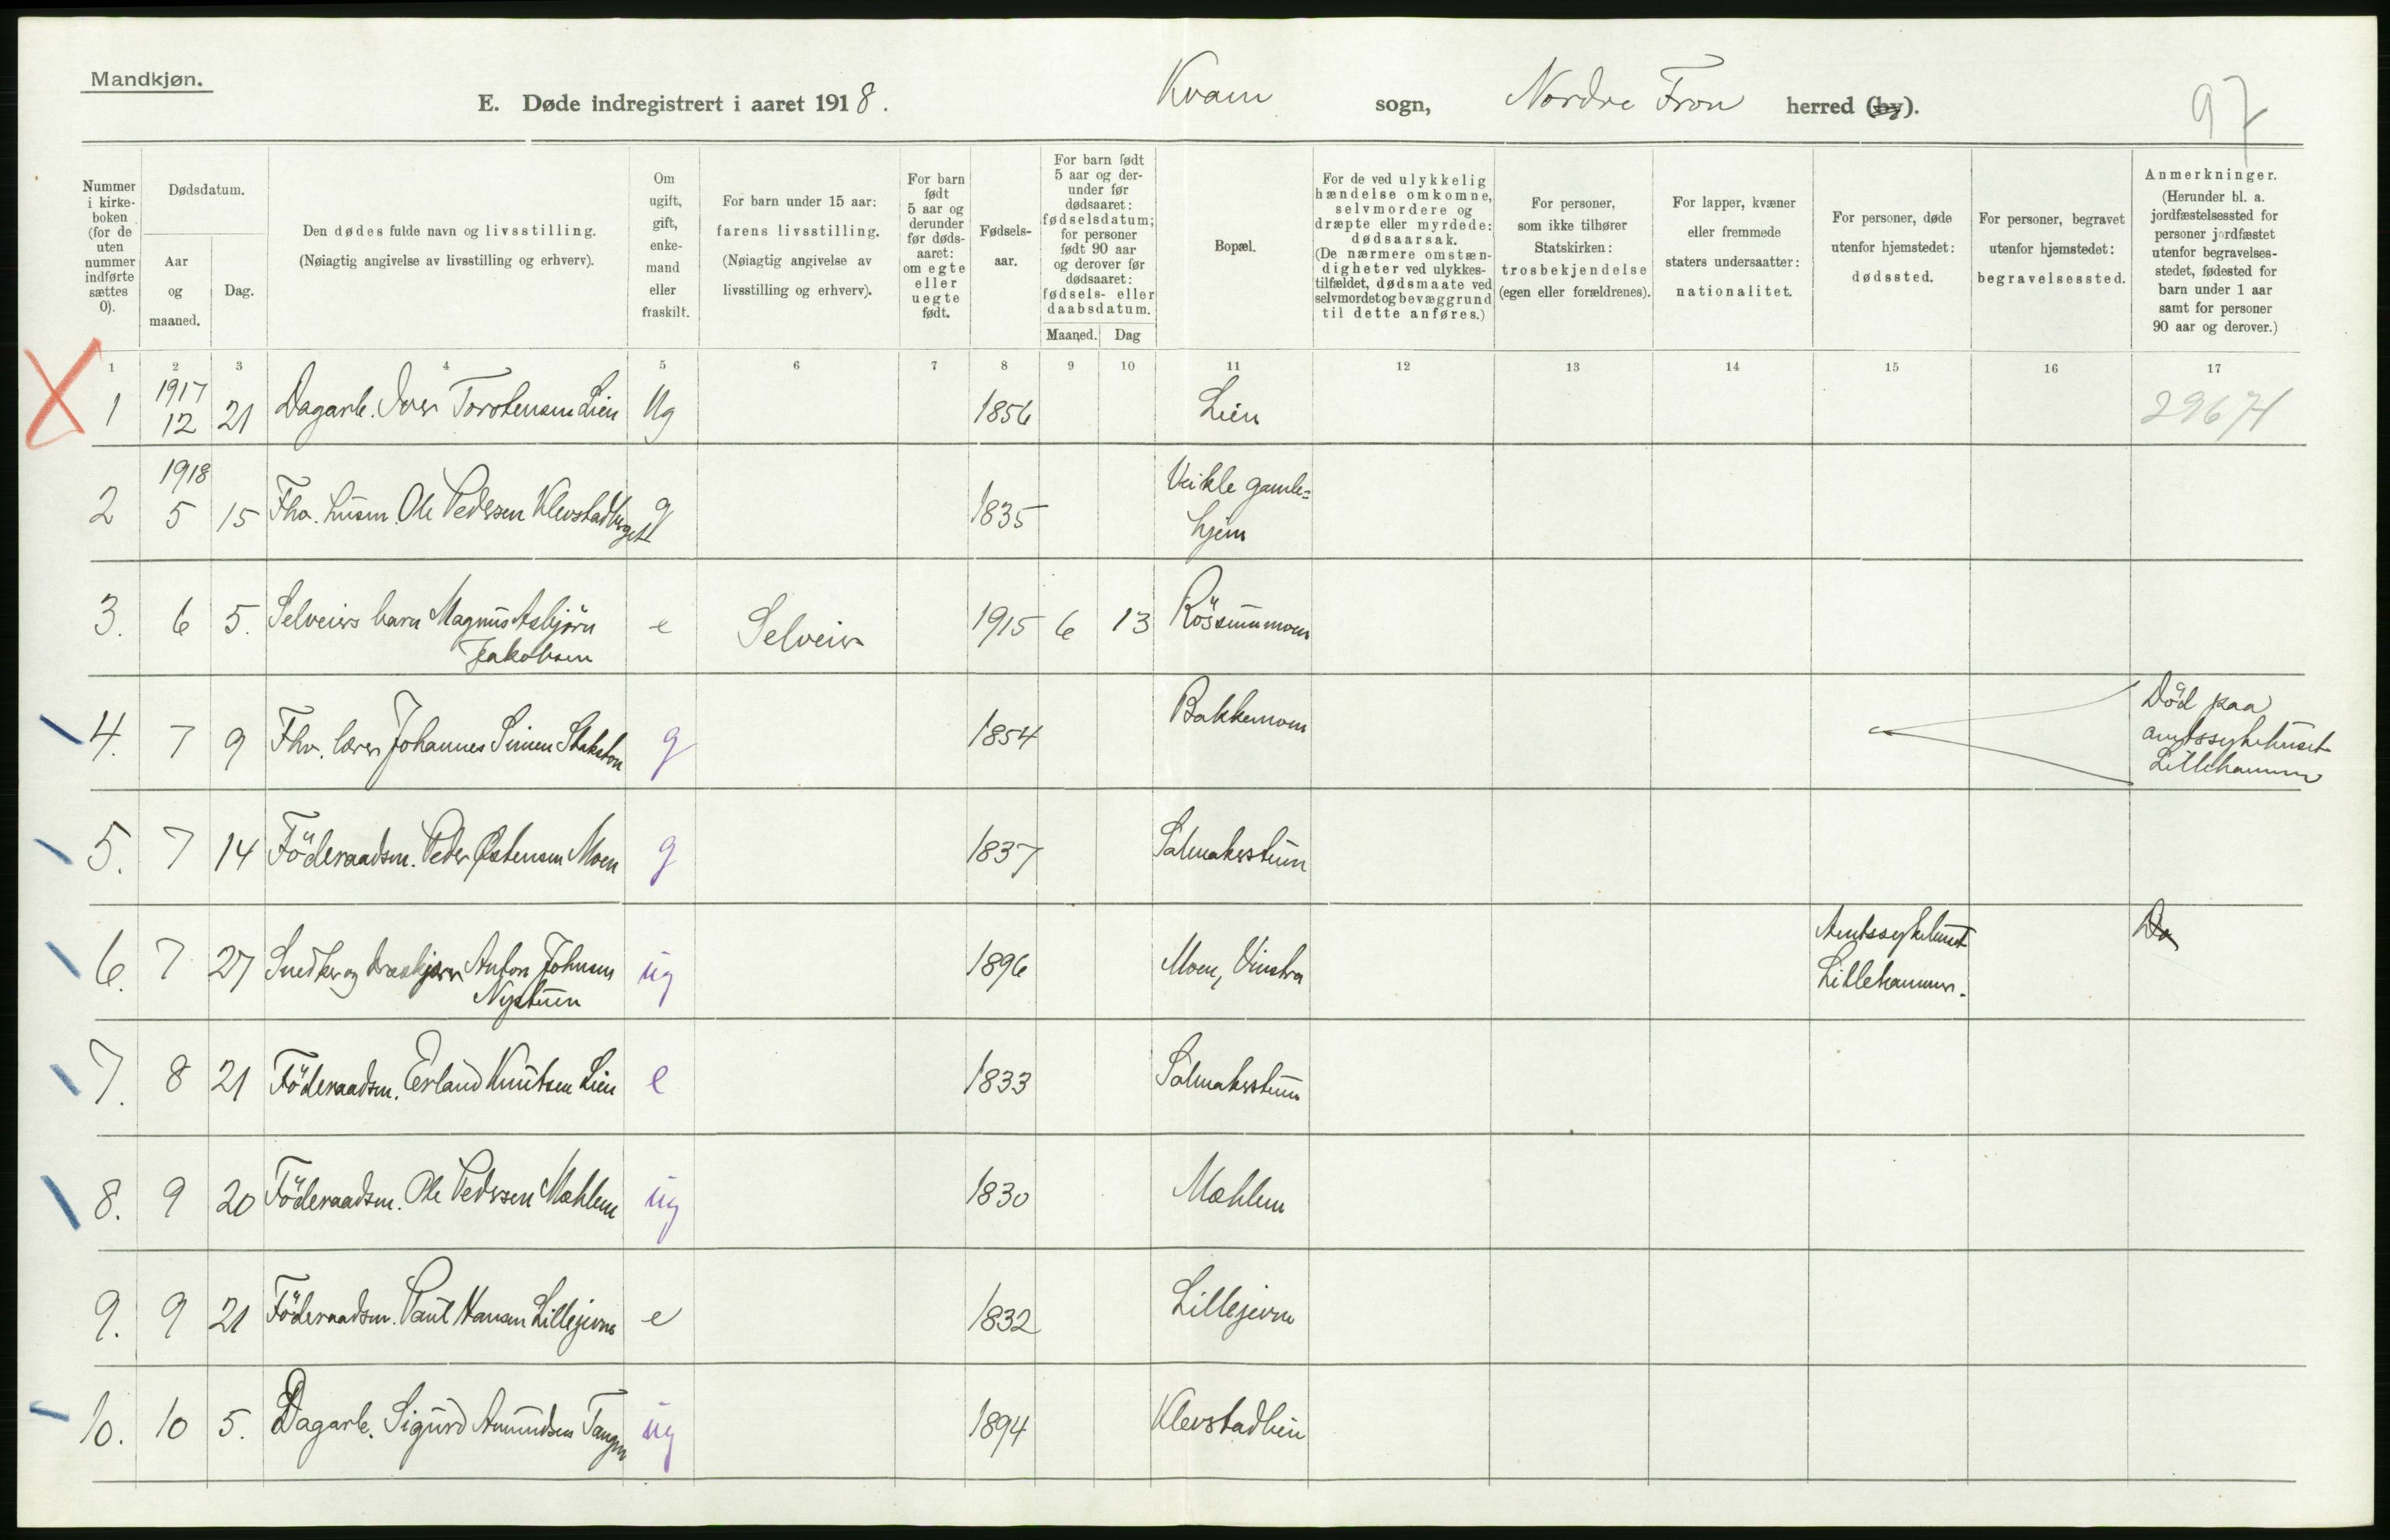 Mandkjøn.
E. Døde indregistrert i aaret 1918. Kvam sogn, Nordre Fron herred (by).
97
Nummer i kirke-boken (for de uten nummer indførte sættes 0).
Dødsdatum.
Aar og maaned.
Dag.
Den dødes fulde navn og livsstilling.
(Nøiagtig angivelse av livsstilling og erhverv).
Om ugift, gift, enke-mand eller fraskilt.
For barn under 15 aar: farens livsstilling. (Nøiagtig angivelse av livsstilling og erhverv).
For barn født 5 aar og derunder før døds-aaret: om egte eller uegte født.
Fødsels-aar.
For barn født 5 aar og der-under før dødsaaret: fødselsdatum; for personer født 90 aar og derover før dødsaaret: fødsels- eller daabsdatum.
Maaned. Dag
Bopæl.
For de ved ulykkelig hændelse omkomne, selvmordere og dræpte eller myrdede: dødsaarsak. (De nærmere omstæn-digheter ved ulykkes-tilfældet, dødsmaate ved selvmordet og bevæggrund til dette anføres.)
For personer, som ikke tilhører Statskirken: trosbekjendelse (egen eller forældrenes).
For lapper, kvæner eller fremmede staters undersaatter: nationalitet.
For personer, døde utenfor hjemstedet: dødssted.
For personer, begravet utenfor hjemstedet: begravelsessted.
Anmerkninger. (Herunder bl. a. jordfæstelsessted for personer jordfæstet utenfor begravelses-stedet, fødested for barn under 1 aar samt for personer 90 aar og derover.)
1 2 3 4 5 6 7 8 9 10 11 12 13 14 15 16 17
1 1917 12 21 Dagarb. Iver Torstensen Lien Ug 1856 Lien 29671
2 1918 5 15 Fhv. husm. Ole Pedersen Klevstadberget g 1835 Veikle gamle=
hjem
3. 6 5. Selveiers barn Magnus Asbjørn e Selveier 1915 6 13
Jakobsen
4. 7 9 Fhv. lærer Johannes Simen Stakston g 1854 Bakkemoen Död paa
amtssykehuset
Lillehammer
5. 7 14 Föderaadsm. Peder Østensen Moen g 1837 Salmakerstuen
6. 7 27 Snedker og træskjærer Anton Johnsen ug 1896 Moen, Vinstra Amtssykehuset Do
Nystuen Lillehammer.
7. 8 21 Föderaadsm. Erland Knutsen Lien e 1833 Salmakerstuen
8. 9 20 Föderaadsm. Ole Pedersen Mæhlem ug 1830 Mæhlem
9. 9 21 Föderaadsm. Paul Hansen Lillejevne e 1832 Lillejevne
10. 10 5. Dagarb. Sigurd Amundsen Tangen ug 1894 Klevstadlien